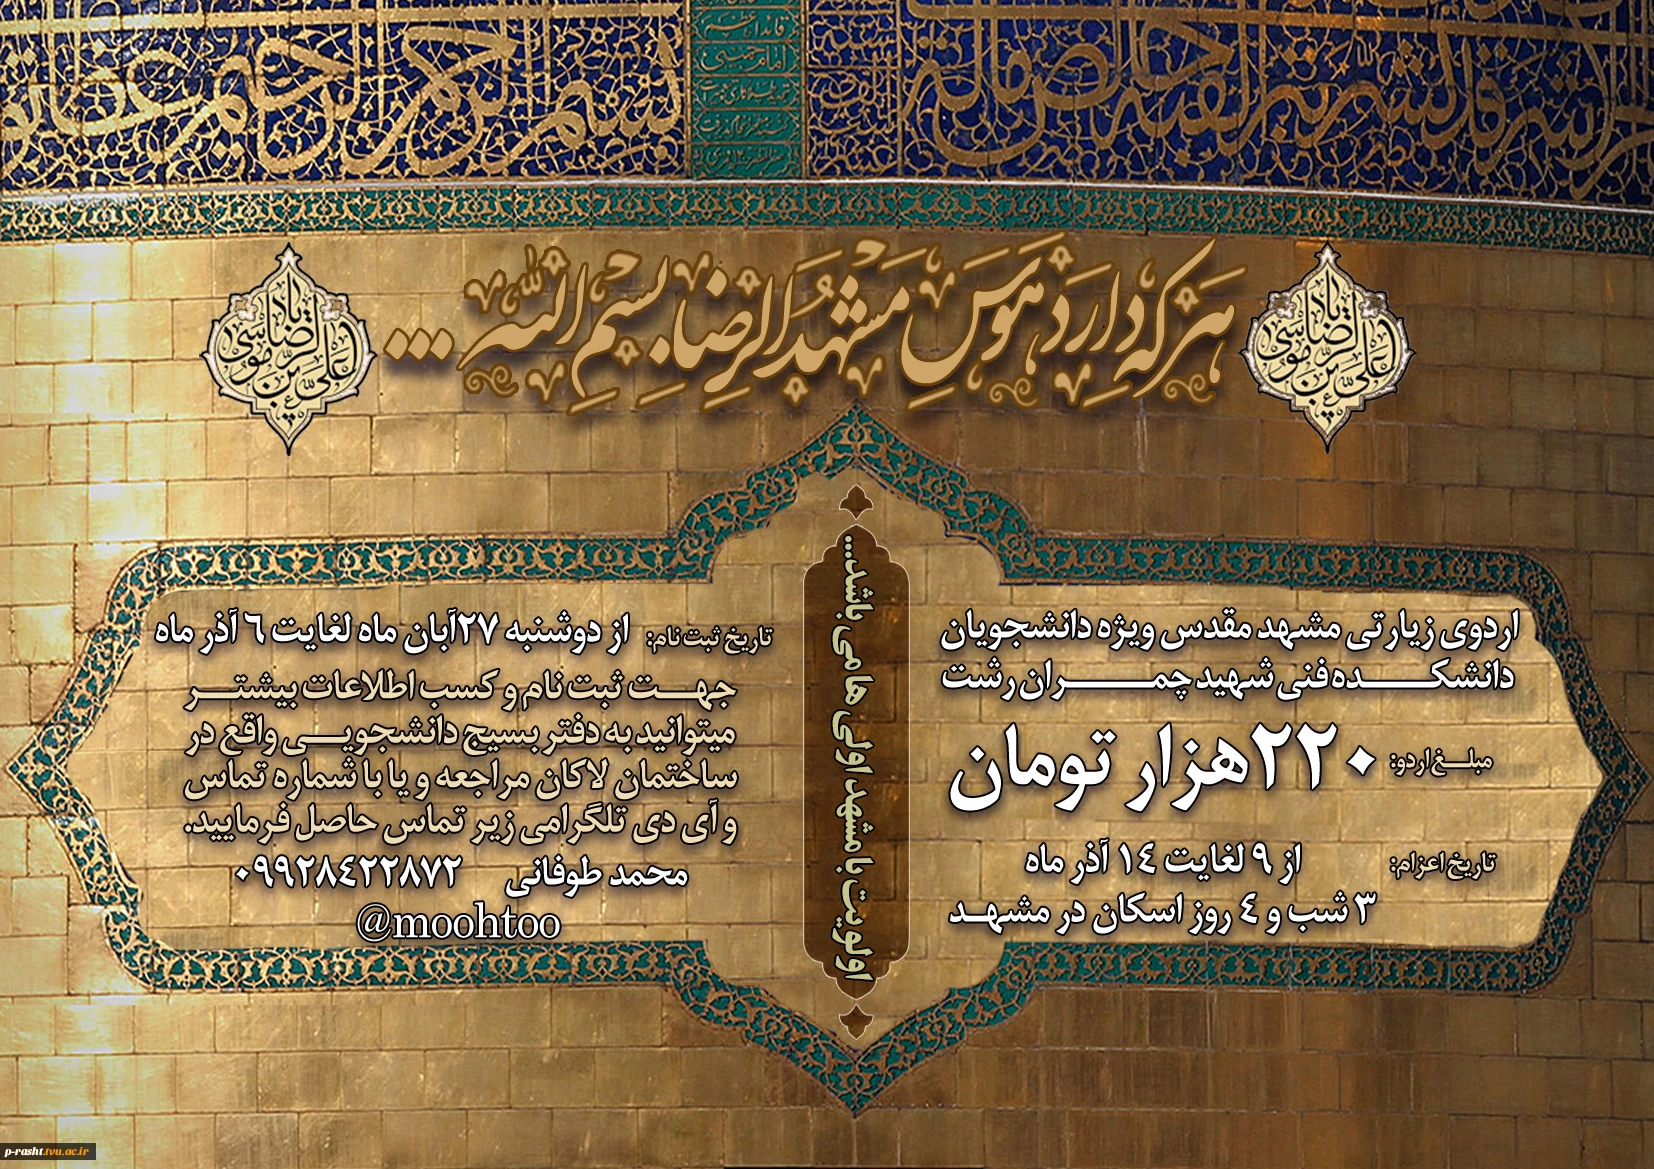 هر که دارد هوس مشهد الرضا بسم الله ...
یا علی بن موسی الرضا
یا علی بن موسی الرضا
اردوی زیارتی مشهد مقدس ویژه دانشجویان
دانشکده فنی شهید چمران رشت
مبلغ اردو: ۲۲۰هزار تومان
تاریخ اعزام: از ۹ لغایت ۱۴ آذر ماه
۳ شب و ۴ روز اسکان در مشهد
اولویت با مشهد اولی ها می باشد...
تاریخ ثبت نام: از دوشنبه ۲۷آبان ماه لغایت ۶ آذر ماه
جهت ثبت نام و کسب اطلاعات بیشتر
میتوانید به دفتر بسیج دانشجویی واقع در
ساختمان لاکان مراجعه و یا با شماره تماس
و آی دی تلگرامی زیر تماس حاصل فرمایید.
محمد طوفانی ۰۹۹۲۸۴۲۲۸۷۲
@moohtoo
p-rasht.tvu.ac.ir